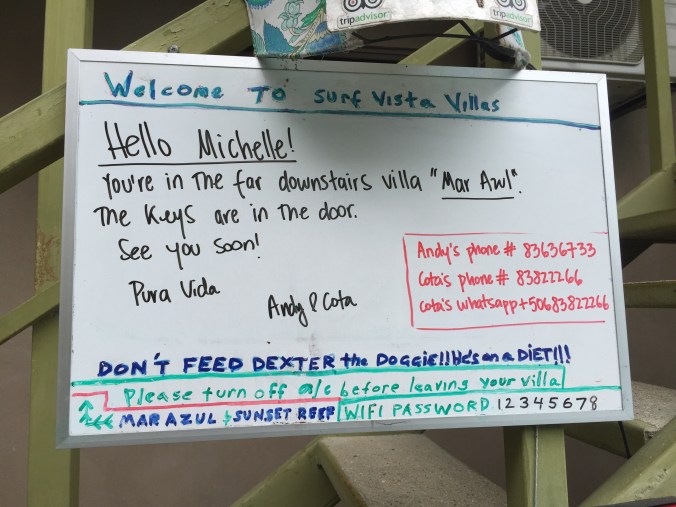 tripadvisor
tripadvisor
Welcome To Surf Vista Villas
Hello Michelle!
You're in The far downstairs villa "Mar Azul".
The Keys are in The door.
See you soon!
Pura Vida
Andy & Cota
Andy's phone # 83636733
Cota's phone # 83822266
Cota's whatsapp +50683822266
DON'T FEED DEXTER the DoGGie!! He's on a DiET!!!
Please turn off a/c before leaving your villa
MAR AZUL + SUNSET REEF WIFI PASSWORD 12345678